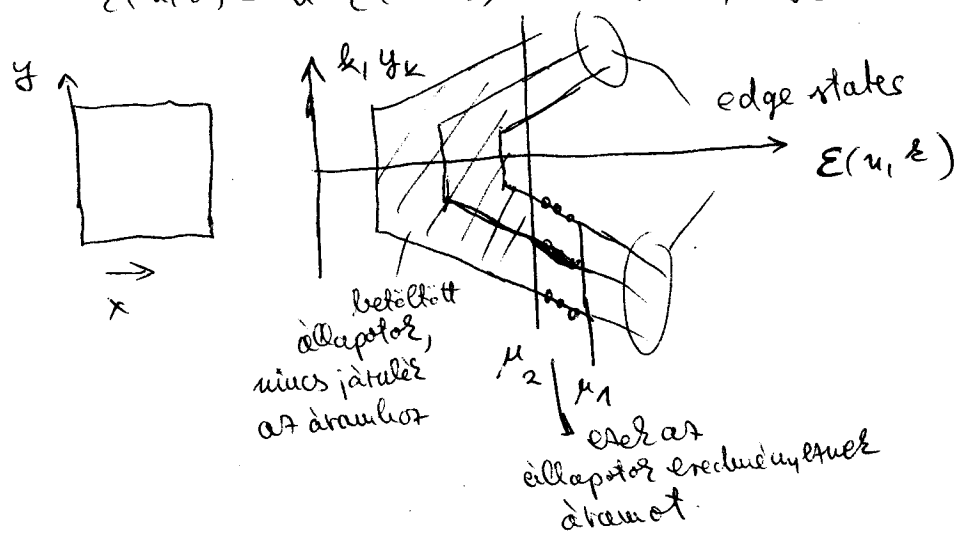 y
k, y_k
edge states
ε(n, k)
x
betöltött
állapotok,
nincs járulék
az áramhoz
μ_2
μ_1
ezek az
állapotok eredményeznek
áramot.